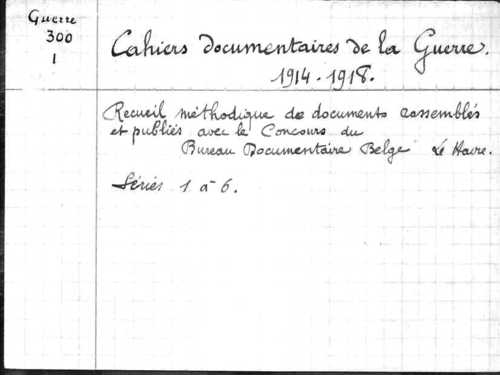 Guerre
300
1
Cahiers documentaires de la Guerre.
1914-1918.
Recueil méthodique de documents rassemblés
et publiés avec le Concours du
Bureau Documentaire Belge Le Havre.
Séries 1 à 6.